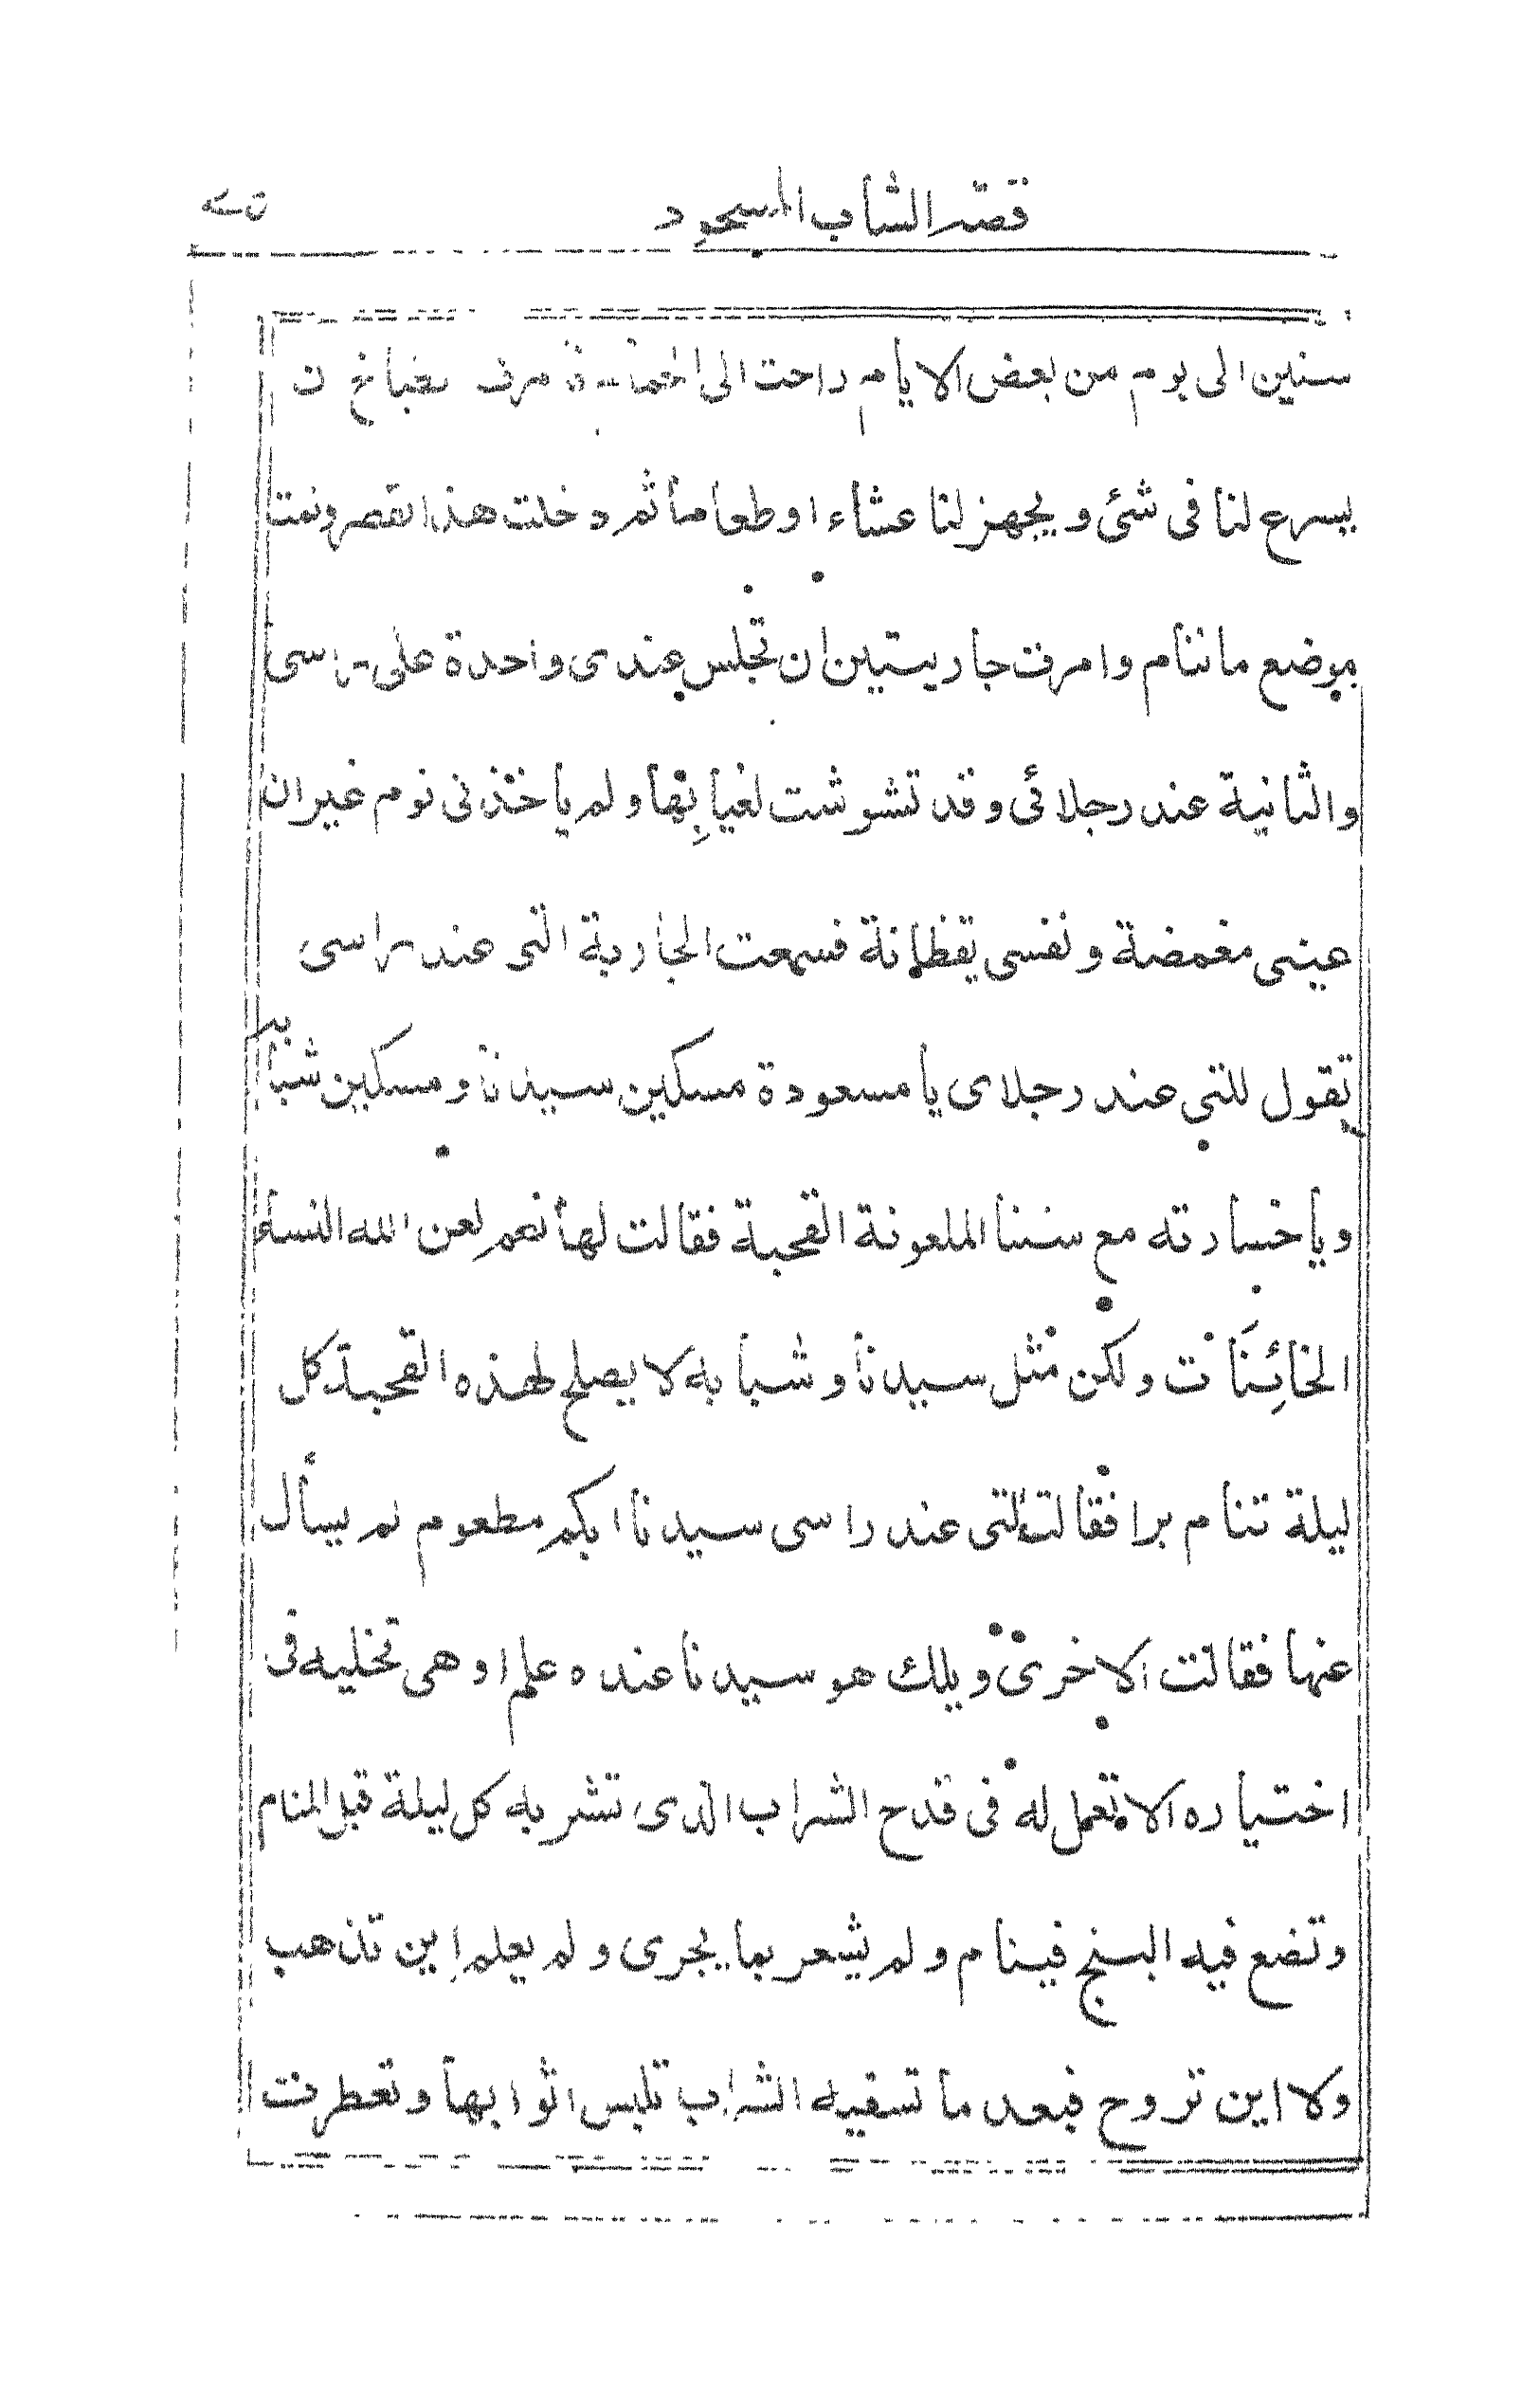 قصة الشاب المسحور
سنين الى يوم من بعض الايام راحت الى الحمام فامرت طباخ ان
يسرع لنا فى شئ و يجهز لنا عشاء او طعاما ثم دخلت هذا القصر ونمت
بموضع ما ننام وامرت جاريتين ان تجلس عندى واحدة على راسى
والثانية عند رجلائى وقد تشوشت لغيابها ولم ياخذنى نوم غير ان
عينى مغمضة ونفسى يقظانة فسمعت الجارية التى عند راسى
تقول للتى عند رجلاى يا مسعودة مسكين سيدنا ومسكين شبابه
ويا خسارته مع ستنا الملعونة القحبة فقالت لها نعم لعن الله النساء
الخائِنَات ولكن مثل سيدنا وشبابه لا يصلح لهذه القحبة كل
ليلة تنام برا فقالت التى عند راسى سيدنا ابكم مطعوم لم يسأل
عنها فقالت الاخرى ويلك هو سيدنا عنده علم او هى تخليه فى
اختياره الا تعمل له فى قدح الشراب الذى تشربه كل ليلة قبل المنام
وتضع فيه البنج فينام ولم يشعر بما يجرى ولم يعلم اين تذهب
ولا اين تروح فبعد ما تسقيه الشراب تلبس اثوابها وتعطرت